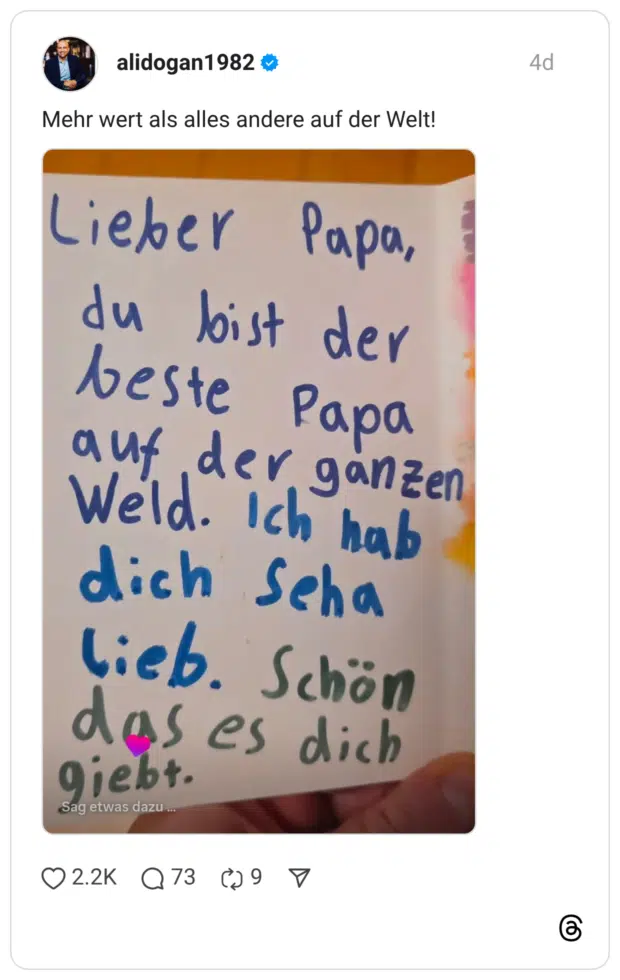 alidogan1982
4d
Mehr wert als alles andere auf der Welt!
Lieber Papa,
du bist der
beste Papa
auf der ganzen
Weld. Ich hab
dich Seha
Lieb. Schön
das es dich
giebt.
Sag etwas dazu ...
2.2K
73
9